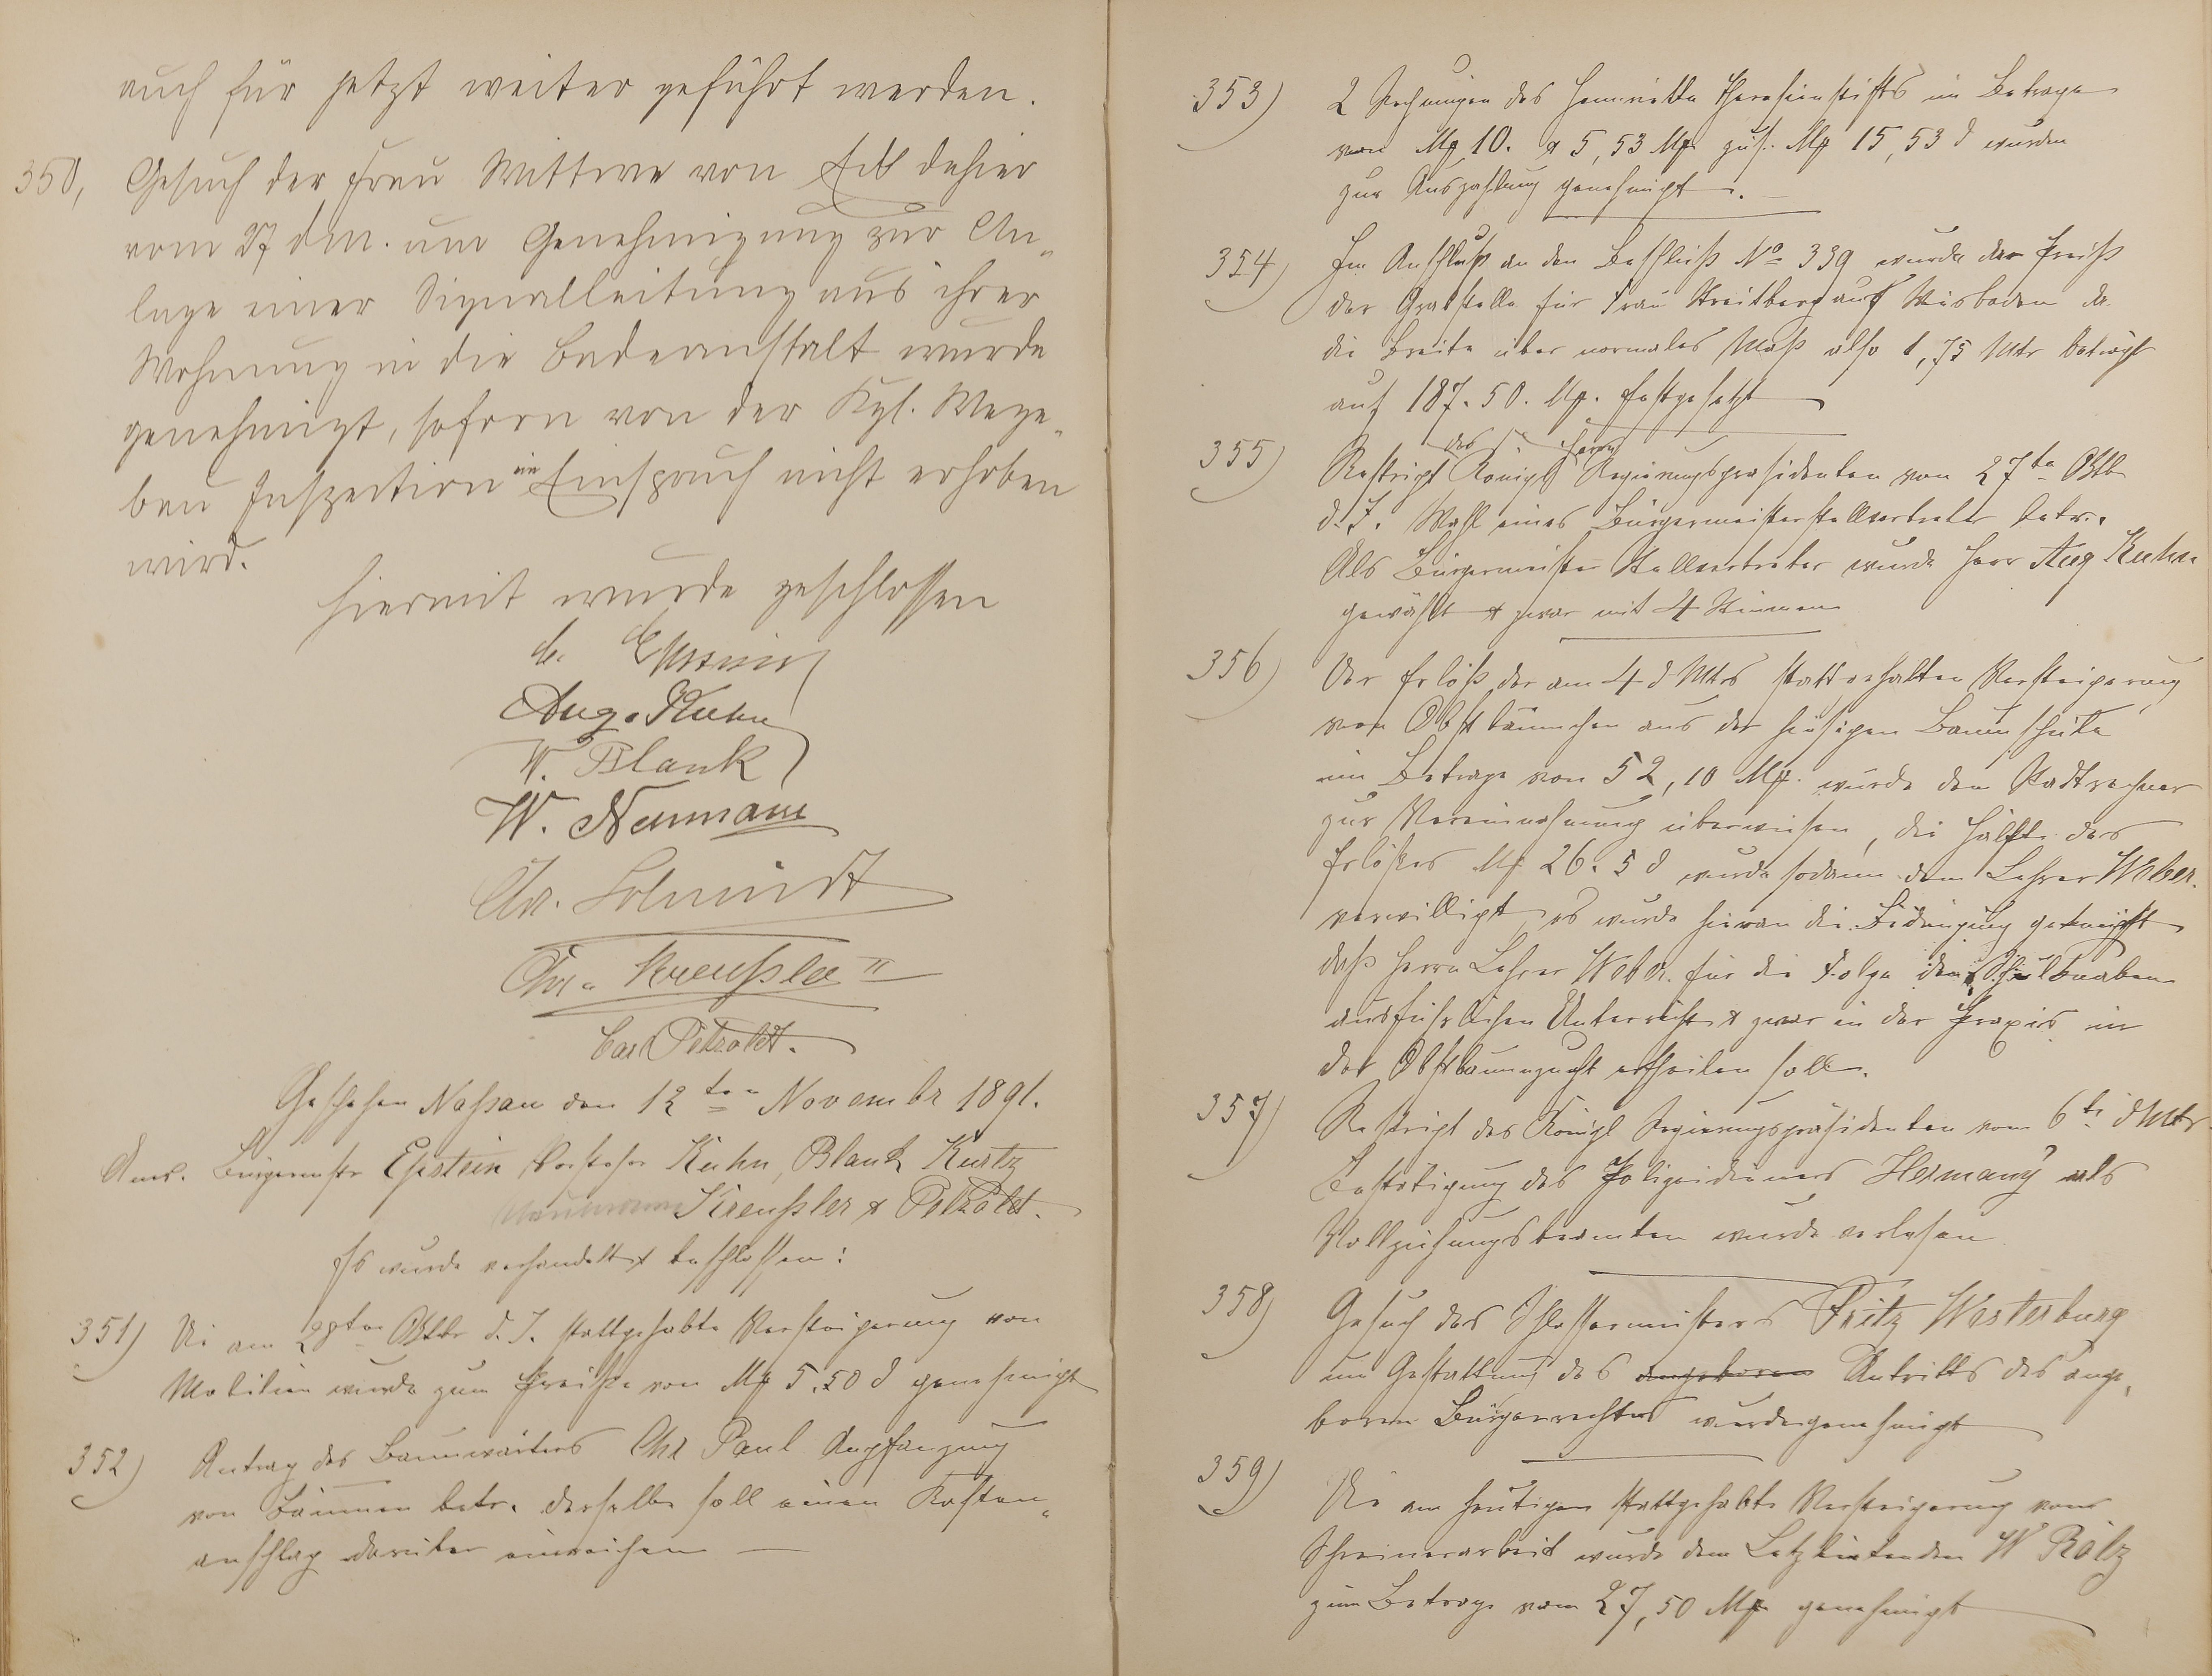 auch für jetzt weiter geführt werden.
350, Gesuch der Frau Wittwe von Eck dahier
vom 27 d.M. um Genehmigung zur An„
lage einer Signalleitung aus ihrer
Wohnung in die Badeanstalt wurde
genehmigt, sofern von der Kgl. Wege„
bau Inspection ein Einspruch nicht erhoben
wird.
Hiermit wurde geschlossen
Aug. Kuhn
W. Blank
W. Neumann
Chr. Schmidt
Chr. Kreußler II
Carl Petzoldt.
Geschehen Naßau den 12ten November 1891.
Anw. Bürgermstr Epstein Vorsteher Kuhn, Blank Kurtz
Neumann Kreußler & Petzoldt.
Es wurde verhandelt & beschlossen:
351) Die am 28ten Oktbr d. J. stattgehabte Versteigerung von
Mobilien wurde zum Preiße von Mg 5.50 d genehmigt
352) Antrag des Baumwärters Chr Paul Anpflanzung
von Bäumen betr. derselbe soll einen Kosten„
anschlag darüber einreichen —
353) 2 Rechnungen des Henrietta Theresienstifts im Betrage
von Mg 10. & 5,53 Mg zus. Mg 15,53 d wurden
zur Auszahlung genehmigt.
354) Im Anschluß an den Beschluß No 339 wurde der Preiß
der Grabstelle für Frau Streitberg aus Wisbaden da
die Breite über normales Maß also 1,75 Mtr beträgt
auf 187.50. Mg. festgesetzt
355) Reskript des Königl Herrn Regierungspräsidenten von 27te Oktb
d. J. Wahl eines Bürgermeisterstellvertreter betr.
Als Bürgermeister Stellvertreter wurde Herr Aug Kuhn
gewählt & zwar mit 4 Stimmen
356) Der Erlöß der am 4 d Mts stattgehalten Versteigerung
von Obstbäumchen aus der hiesigen Baumschule
im Betrage von 52,10 Mg. wurde dem Stadtrechner
zur Vereinnahmung überwiesen, die Hälfte des
Erlöses Mg 26.5 d wurde sodann dem Lehrer Weber.
verwilligt es wurde hieran die Bedingung geknüpft
daß Herrn Lehrer Weber. für die Folge den Schulknaben
ausführlichen Unterricht & zwar in der Praxis in
der Obstbaumzucht ertheilen soll.
357) Reskript des Königl Regierungspräsidenten vom 6te d Mts
Bestätigung des Polizeidieners Hermany als
Vollziehungsbeamten wurde verlesen
358) Gesuch des Schlossermeisters Fritz Westerburg
um Gestattung des angeboren Antritts des ange„
boren Bürgerrechtes wurde genehmigt
359) Die am heutigen stattgehabte Versteigerung von
Schreinerarbeit wurde dem Letzbietenden W Rölz
zum Betrage von 27,50 Mg genehmigt